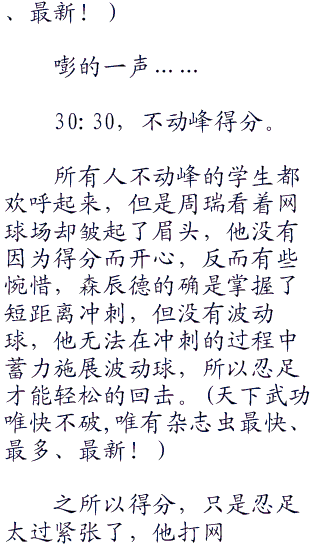 、最新！）
嘭的一声……
30:30，不动峰得分。
所有人不动峰的学生都
欢呼起来，但是周瑞看着网
球场却皱起了眉头，他没有
因为得分而开心，反而有些
惋惜，森辰德的确是掌握了
短距离冲刺，但没有波动
球，他无法在冲刺的过程中
蓄力施展波动球，所以忍足
才能轻松的回击。(天下武功
唯快不破,唯有杂志虫最快、
最多、最新！）
之所以得分，只是忍足
太过紧张了，他打网